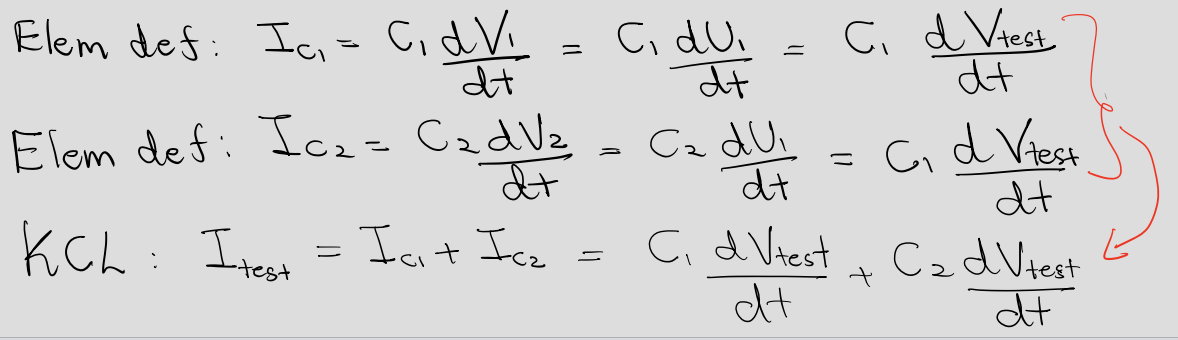 Elem def: I_C1 = C_1 dV_1/dt = C_1 dU_1/dt = C_1 dV_test/dt
Elem def: I_C2 = C_2 dV_2/dt = C_2 dU_1/dt = C_1 dV_test/dt
KCL: I_test = I_C1 + I_C2 = C_1 dV_test/dt + C_2 dV_test/dt